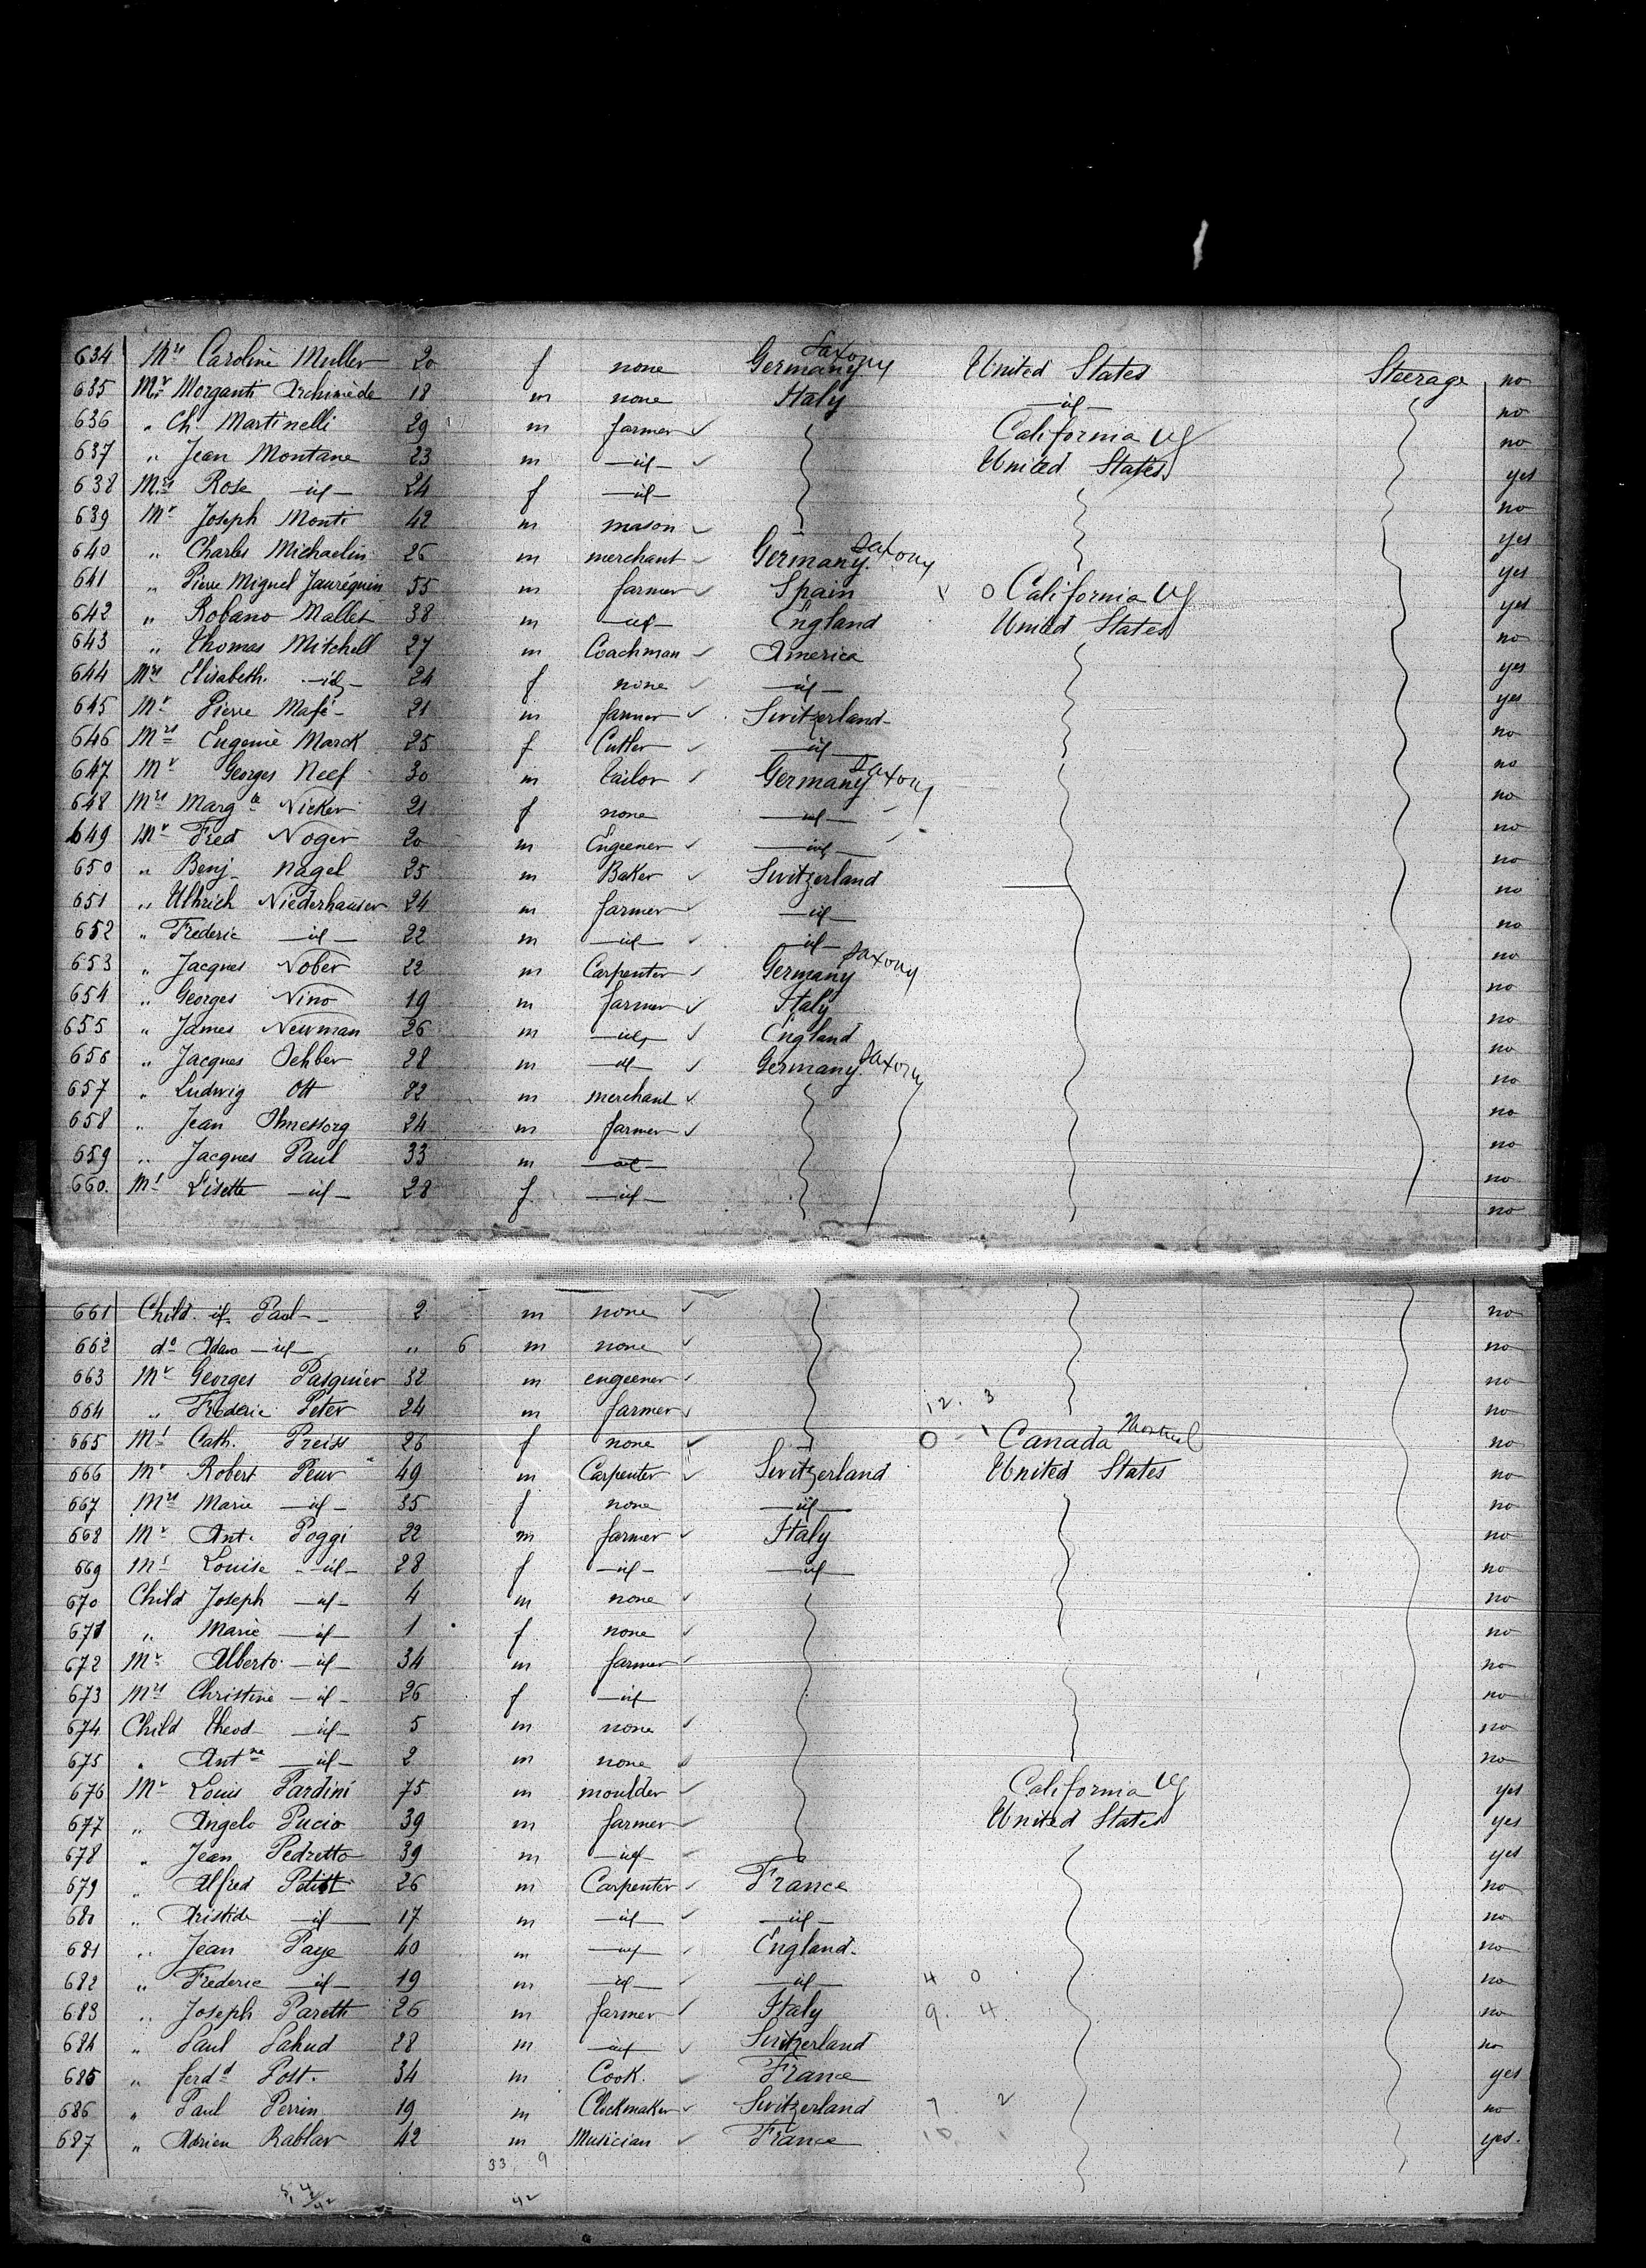 634 Mrs Caroline Muller 20 f none Germany Saxony United States Steerage no
635 Mr Morganti Archimède 18 m none Italy —id— no
636 " Ch. Martinelli 29 m farmer California US no
637 " Jean Montane 23 m —id— United States yes
638 Mrs Rose —id— 24 f —id— no
639 Mr Joseph Monti 42 m mason yes
640 " Charles Michaelin 26 m merchant Germany Saxony yes
641 " Pierre Miguel Jauréguin 55 m farmer Spain O California US yes
642 " Robano Mallet 38 m —id— England United States no
643 " Thomas Mitchell 27 m Coachman America yes
644 Mrs Elisabeth —id— 24 f none —id— yes
645 Mr Pierre Mafé 21 m farmer Switzerland no
646 Mrs Eugenie Marck 25 f Cutler —id— no
647 Mr Georges Neef 30 m tailor Germany Saxony no
648 Mrs Margte Nicker 21 f none —id— no
649 Mr Fred Noger 20 m Engeener —id— no
650 " Benj. Nagel 25 m Baker Switzerland no
651 " Ulhrich Niederhauser 24 m farmer —id— no
652 " Frederic —id— 22 m —id— —id— no
653 " Jacques Nober 22 m Carpenter Germany Saxony no
654 " Georges Nino 19 m farmer Italy no
655 " James Newman 26 m —id— England no
656 " Jacques 28 m —id— Germany Saxony no
657 " Ludwig Ott 22 m merchant no
658 " Jean 24 m farmer no
659 " Jacques Paul 33 m —id— no
660. Ms Lisette —id— 28 f —id— no
661 Child id. Paul 2 m none no
662 do Adam —id— " 6 m none no
663 Mr Georges Pasquier 32 m engeener no
664 " Frederic Peter 24 m farmer 12. 3 no
665 Ms Cath. Preiss 26 f none O - 1 Canada Montreal no
666 Mr Robert Peur 49 m Carpenter Switzerland United States no
667 Mrs Marie —id— 35 f none —id— no
668 Mr Ant. Poggi 22 m farmer Italy no
669 Ms Louise —id— 28 f —id— —id— no
670 Child Joseph —id— 4 m none no
671 " Marie —id— 1 f none no
672 Mr Alberto —id— 34 m farmer no
673 Mrs Christine —id— 26 f —id— no
674 Child Theod —id— 5 m none no
675 " Antne —id— 2 m none no
676 Mr Louis Pardini 75 m moulder California US yes
677 " Angelo Pucio 39 m farmer United States yes
678 " Jean Pedretto 39 m —id— yes
679 " Alfred Petitt 26 m Carpenter France no
680 " Aristide —id— 17 m —id— —id— no
681 " Jean Paye 40 m —id— England no
682 " Frederic —id— 19 m —id— —id— 4 0 no
683 " Joseph Paretti 26 m farmer Italy 9. 4 no
684 " Paul Pahud 28 m —id— Switzerland no
685 " ferdd Post. 34 m Cook France yes
686 " Paul Perrin 19 m Clockmaker Switzerland 7 2 no
687 " Adrien Rablar 42 m Musician France 10. 1 yes.
33. 9
42